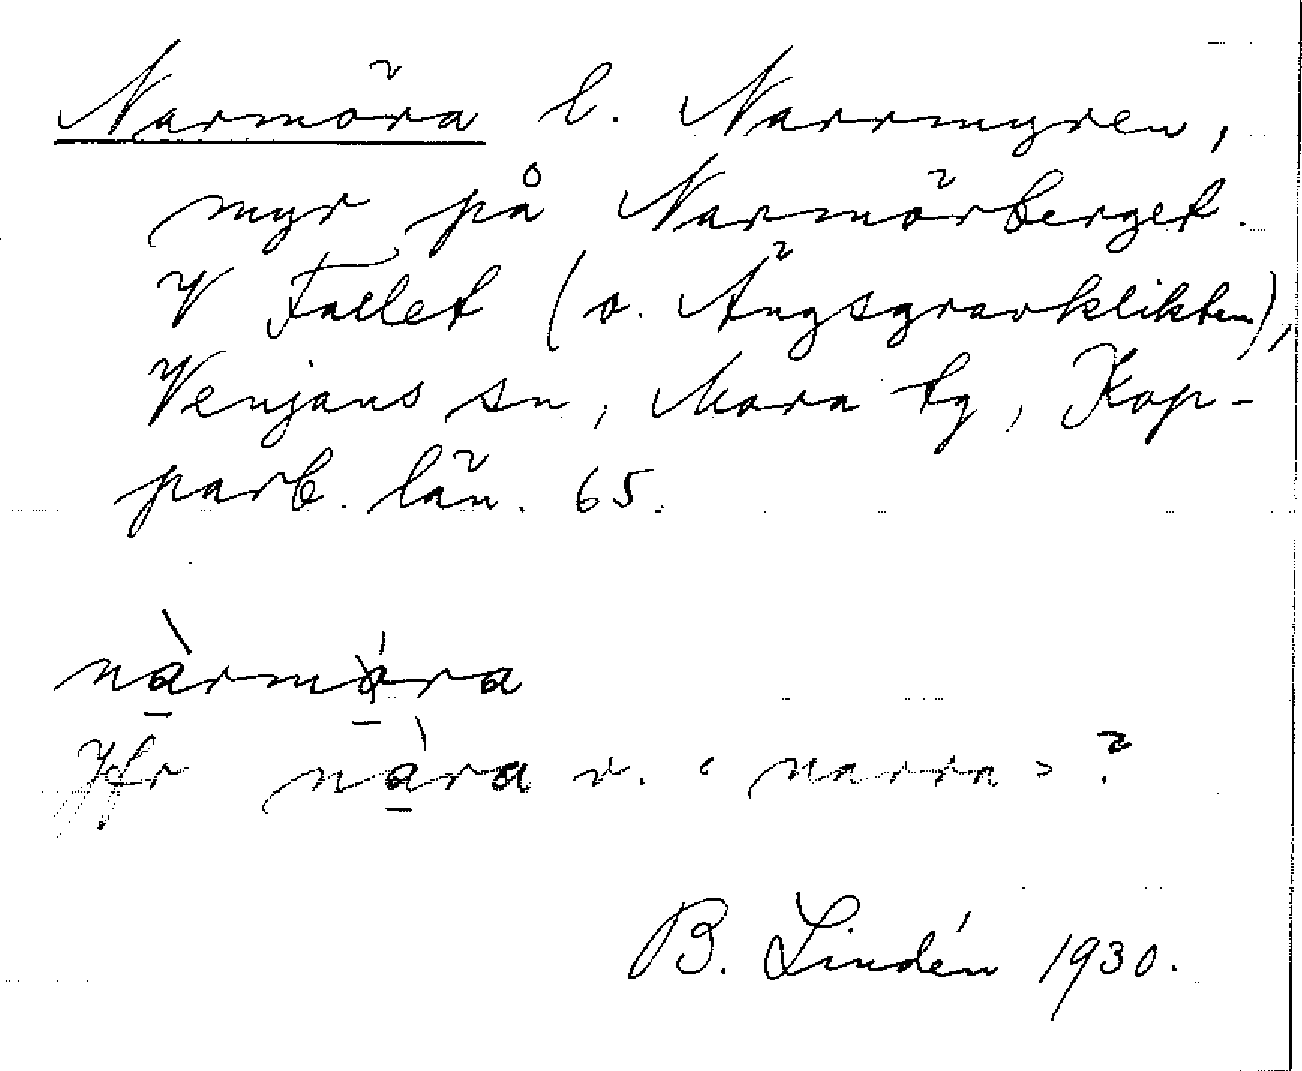 Narmöra l. Narrmyren,
myr på Narmörberget.
V Fallet (o. Ängsgravklikten),
Venjans sn, Mora tg, Kop-
parb. län. 65.
nàrmóra
Jfr nàra v. ‹ narra › ?
B. Lindén 1930.